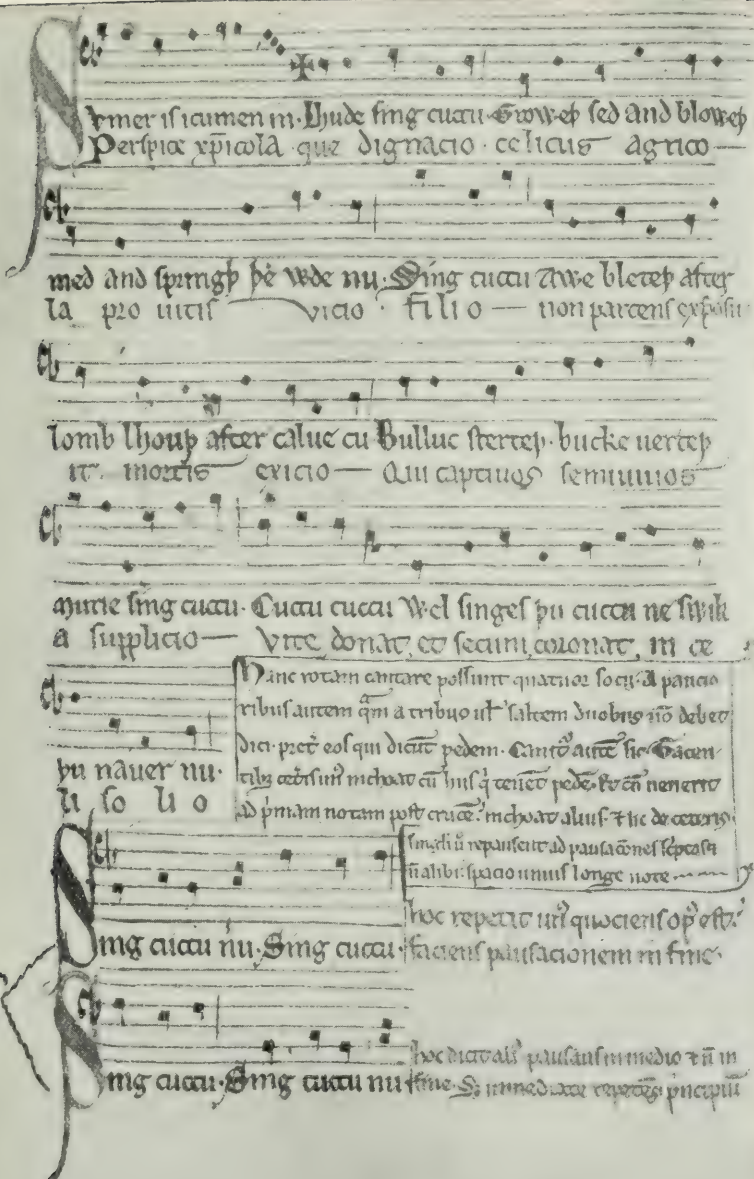 Svmer is icumen in. Lhude sing cuccu. Groweþ sed and bloweþ
Perspice xp̄icola que dignacio celicus agrico
med and springþ þe wde nu. Sing cuccu Awe bleteþ after
la pro uitis vicio filio non parcens exposu
lomb lhouþ after calue cu Bulluc sterteþ. bucke uerteþ
it mortis exicio Qui captiuos semiuiuos
Murie sing cuccu. Cuccu cuccu Wel singes þu cuccu ne swik
a supplicio Vite donat et secum coronat in ce
þu nauer nu.
li so li o
Hanc rotam cantare possunt quatuor socij. A paucio
ribus autem qͣm a tribus uł saltem duobus nō debet
dici. pret̉ eos qui dicūt pedem. Canit̉ autē sic. Tacen
tibꝫ cet̉is unꝰ inchoat cū hiis qͥ tenēt pedē. Et cū uenerit
ad pͥmam notam post crucē. inchoat alius. ⁊ sic de ceteris.
singli ů repausent ad pausacōnes sc̉ptas ⁊
ñ alibi. spacio unius longe note
Sing cuccu nu. Sing cuccu.
hoc repetit unꝰ quociens opꝰ est.
faciens pausacionem in fine.
Sing cuccu. Sing cuccu nu
hoc dicit aliꝰ pausans in medio ⁊ ñ in
fine. Sꝫ inmediate repetēs pͥncipiū